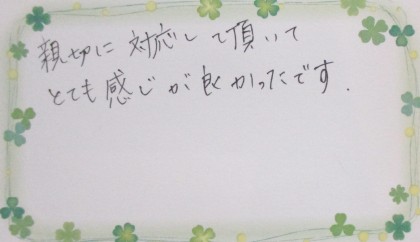 親切に対応して頂いて
とても感じが良かったです.